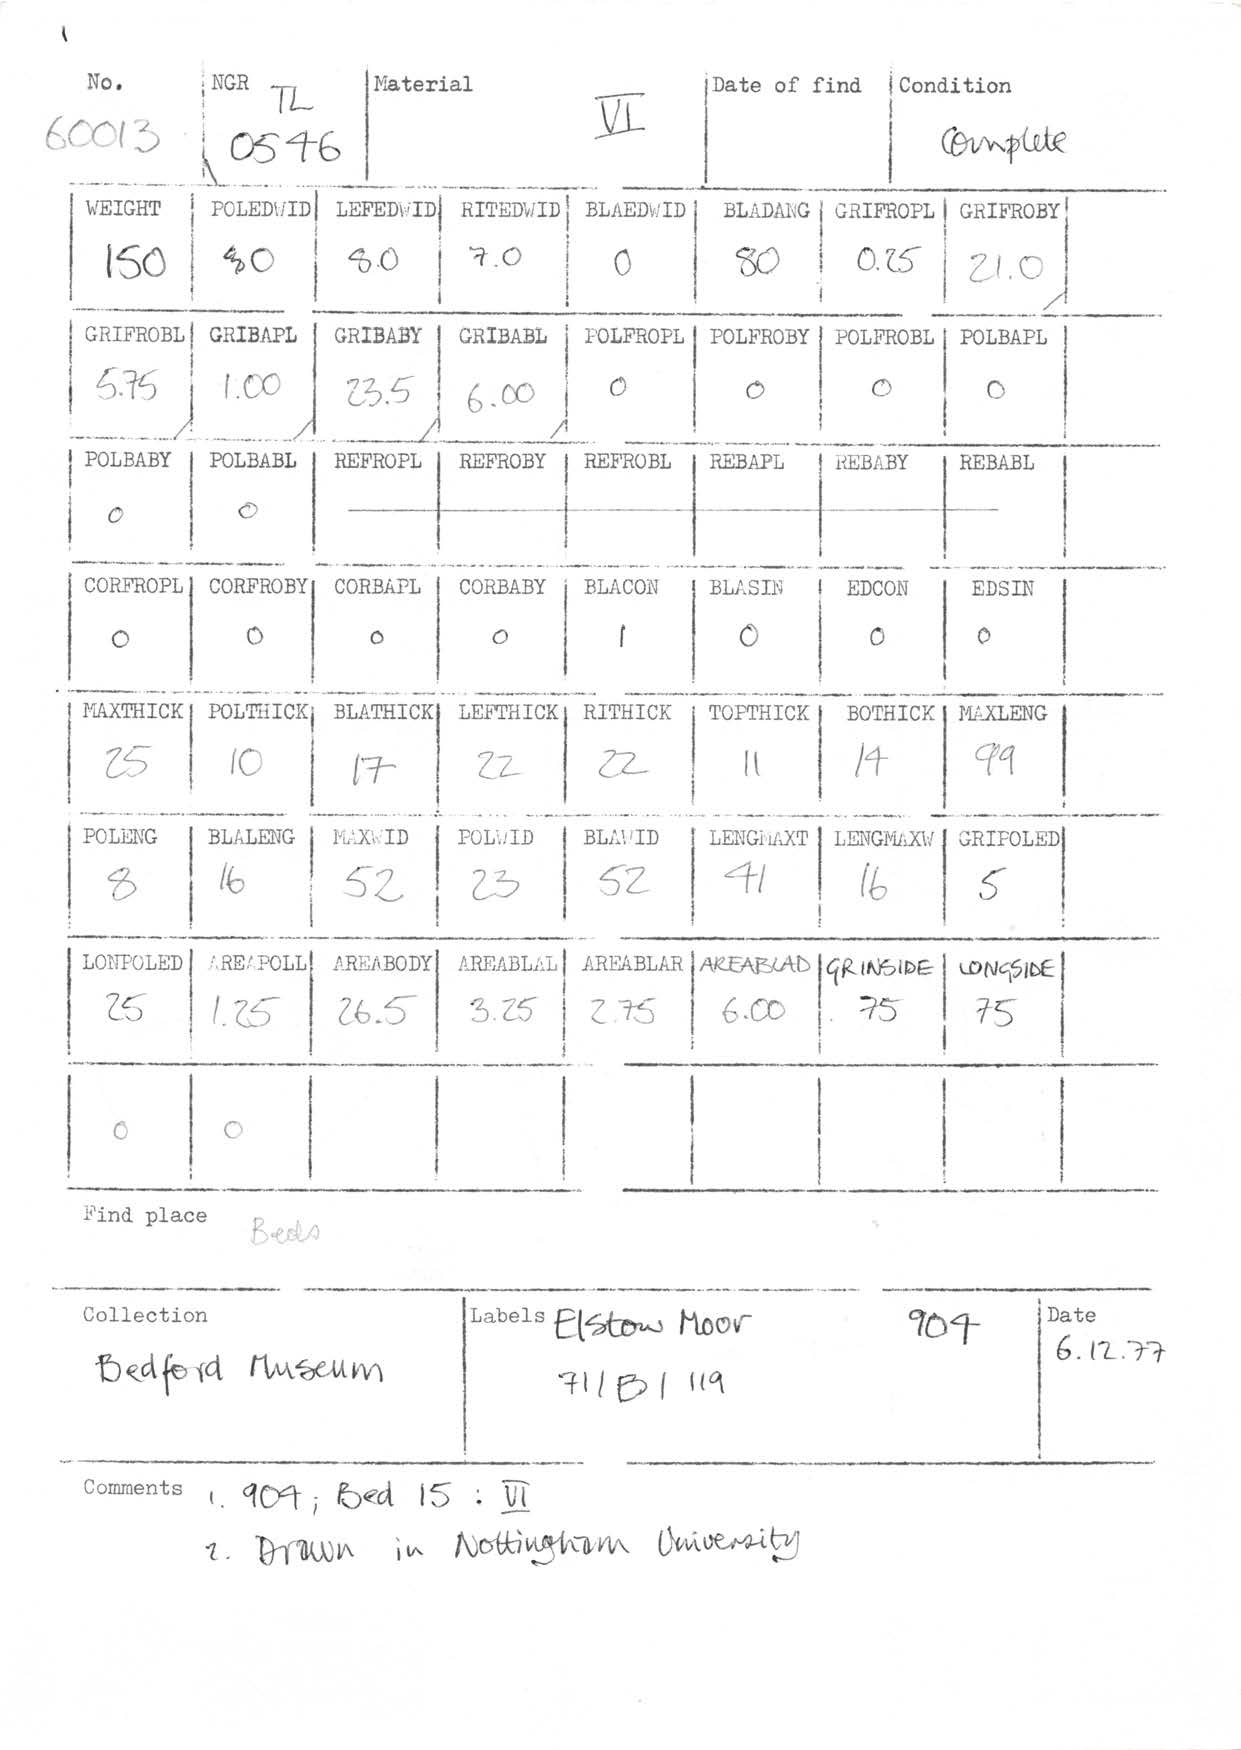 No. NGR Material Date of find Condition
60013 TL 0546 VI Complete
WEIGHT POLEDWID LEFEDWID RITEDWID BLAEDWID BLADANG GRIFROPL GRIFROBY
150 80 8.0 7.0 0 80 0.25 21.0
GRIFROBL GRIBAPL GRIBABY GRIBABL POLFROPL POLFROBY POLFROBL POLBAPL
5.75 1.00 23.5 6.00 0 0 0 0
POLBABY POLBABL REFROPL REFROBY REFROBL REBAPL REBABY REBABL
0 0
CORFROPL CORFROBY CORBAPL CORBABY BLACON BLASIN EDCON EDSIN
0 0 0 0 1 0 0 0
MAXTHICK POLTHICK BLATHICK LEFTHICK RITHICK TOPTHICK BOTHICK MAXLENG
25 10 17 22 22 11 14 99
POLENG BLALENG MAXWID POLWID BLAWID LENGMAXT LENGMAXW GRIPOLED
8 16 52 23 52 41 16 5
LONPOLED AREAPOLL AREABODY AREABLAL AREABLAR AREABLAD GRINSIDE LONGSIDE
25 1.25 26.5 3.25 2.75 6.00 75 75
0 0
Find place Beds
Collection Labels Elstow Moor 904 Date
Bedford Museum 71/B/119 6.12.77
Comments 1. 904; Bed 15 : VI
2. Drawn in Nottingham University